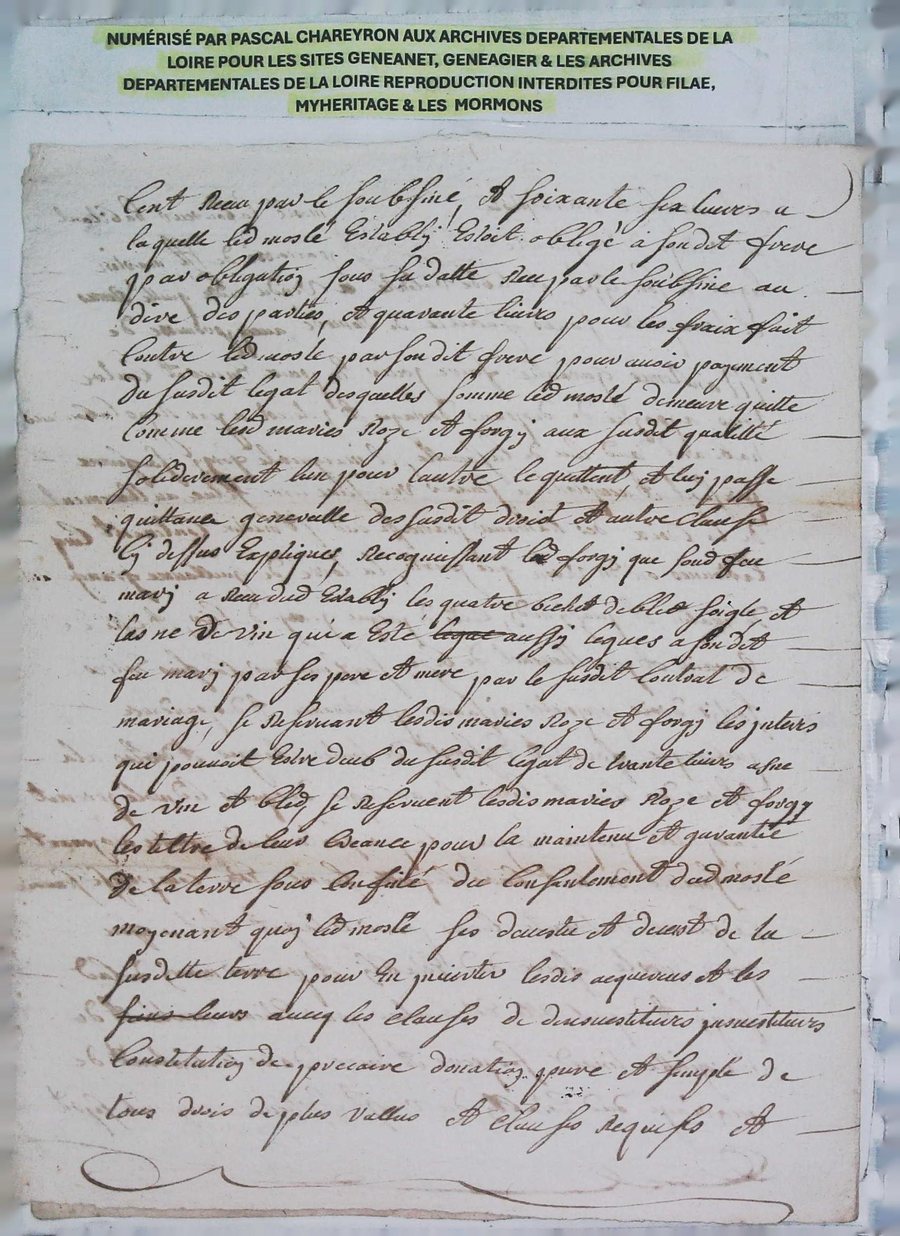 NUMÉRISÉ PAR PASCAL CHAREYRON AUX ARCHIVES DEPARTEMENTALES DE LA
LOIRE POUR LES SITES GENEANET, GENEAGIER & LES ARCHIVES
DEPARTEMENTALES DE LA LOIRE REPRODUCTION INTERDITES POUR FILAE,
MYHERITAGE & LES MORMONS
Cent Receu par le soubsiné, Et soixante six livres a
laquelle led moslé Establj Estoit obligé a son dit frere
par obligation sous sa datte Receu par le soubsine au
dire des parties, Et quarante livres pour les fraix fait
Contre led moslé par son dit frere pour avoir payement
du susdit legat desquelles somme led moslé demeure quitte
Comme lesd maries Roze Et forgj aux susdit qualitté
soliderement lun pour lautre le quittent, Et luj passe
quittance generalle des susdit droit Et autre Clause
Cj dessus Expliques, Recognissant lad forgj que sond feu
marj a Receu dud Establj les quatre bichet de bled soigle, Et
lasne De vin qui a Esté legué aussj legues a son dit
feu marj par ses pere Et mere par le susdit Contrat de
mariage, se Reservant lesdis maries Roze Et forgj les jnteris
qui pouvoit Estre deub du susdit legat de trante livres asne
de vin Et bled, se Reservent lesdis maries Roze Et forgy
les tiltre de leur Creance pour la maintenu Et garantie
De la terre sous Confiné du Consentement dud moslé
moyenant quoj led moslé ses deveste Et devest de la
susdette terre pour En lesdis aquereus Et les
leurs avecq les Clauses de devestitures jnvestitures
Constitution de precaire donation pure Et simple de
tous drois de plus vallus Et Clauses Requises Et